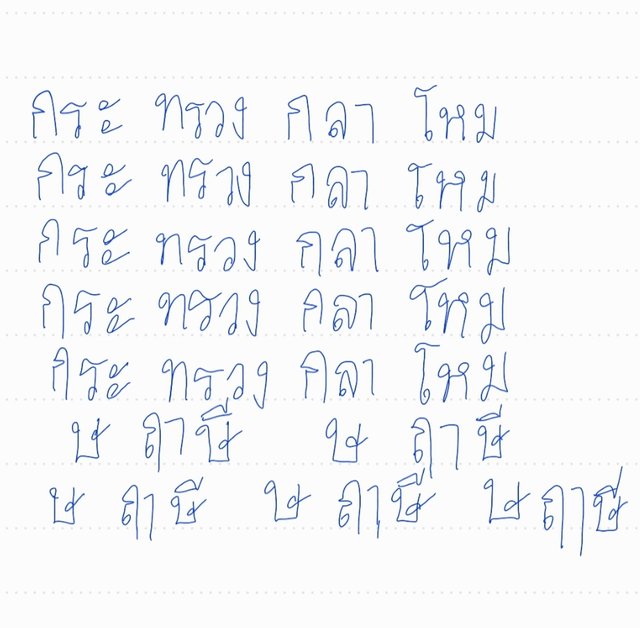 กระ ทรวง กลา โหม
กระ ทรวง กลา โหม
กระ ทรวง กลา โหม
กระ ทรวง กลา โหม
กระ ทรวง กลา โหม
ษ ฤาษี ษ ฤาษี
ษ ฤาษี ษ ฤาษี ษ ฤาษี